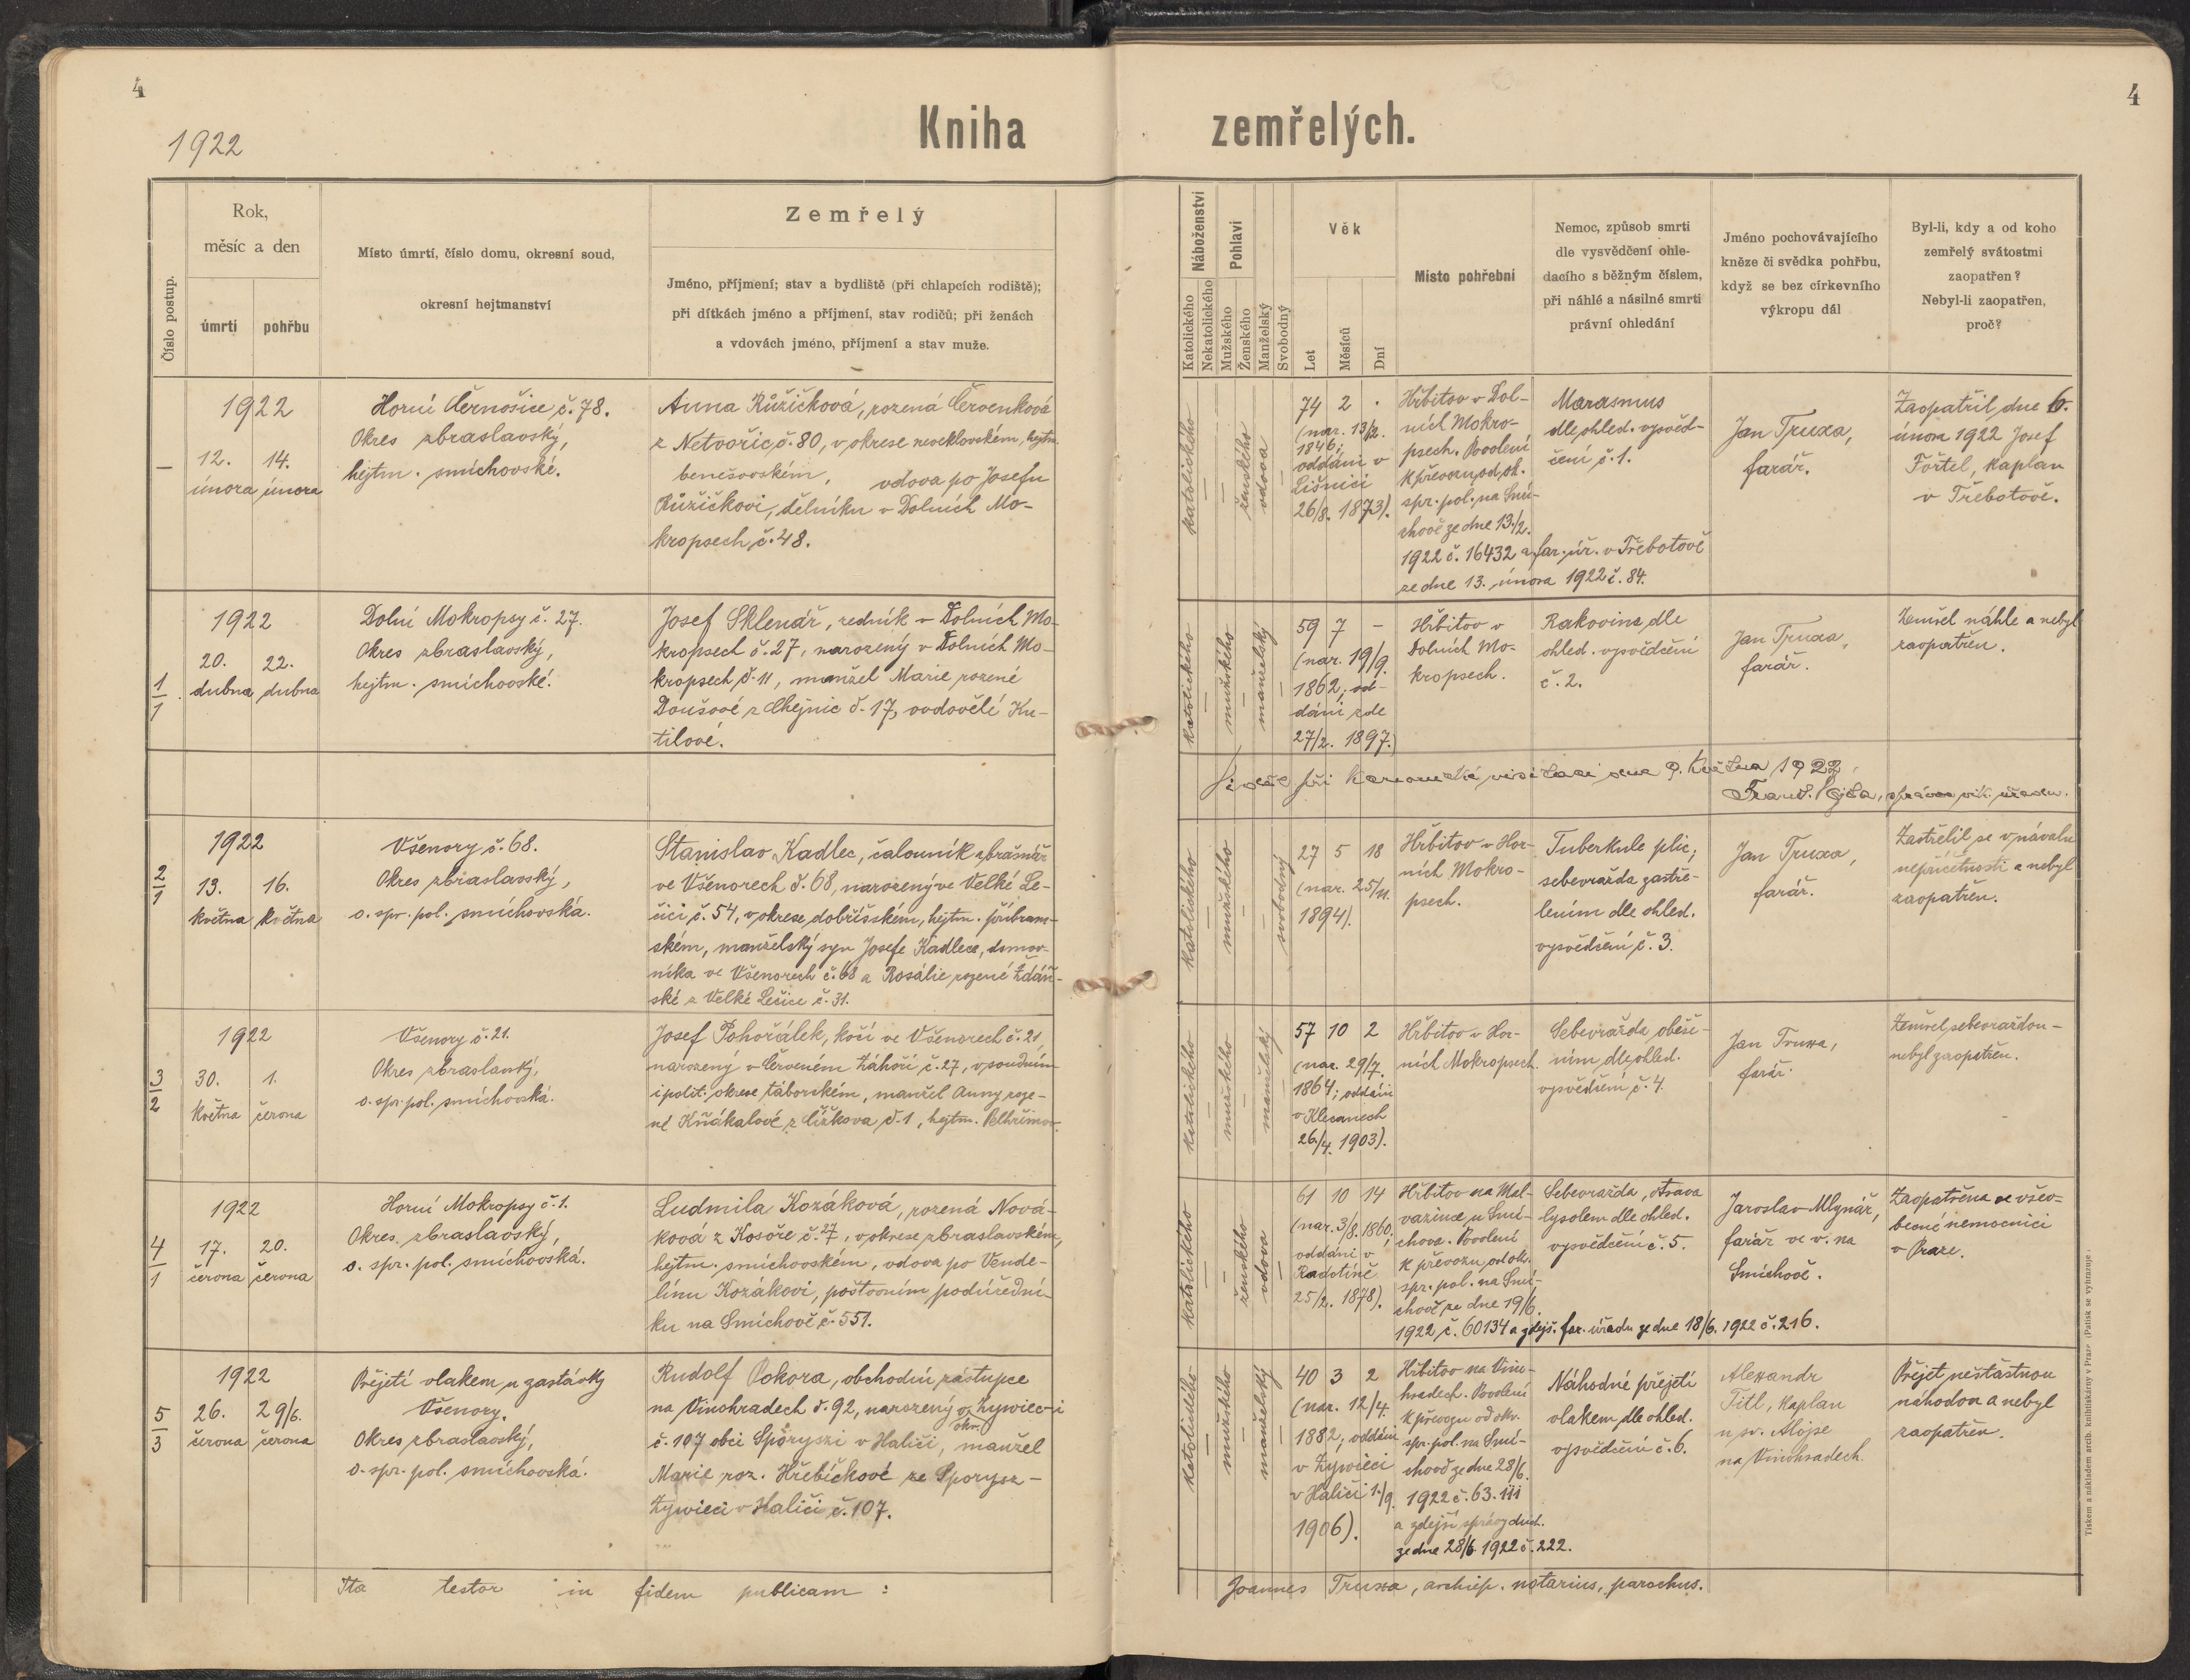 4
4
1922
Kniha zemřelých.
Číslo postup.
Rok,
měsíc a den
úmrtí
pohřbu
Místo úmrtí, číslo domu, okresní soud,
okresní hejtmanství
Zemřelý
Jméno, příjmení; stav a bydliště (při chlapcích rodiště);
při dítkách jméno a příjmení, stav rodičů; při ženách
a vdovách jméno, příjmení a stav muže.
Náboženství
Katolického
Nekatolického
Pohlaví
Mužského
Ženského
Manželský
Svobodný
Věk
Let
Měsíců
Dní
Místo pohřební
Nemoc, způsob smrti
dle vysvědčení ohle-
dacího s běžným číslem,
při náhlé a násilné smrti
právní ohledání
Jméno pochovávajícího
kněze či svědka pohřbu,
když se bez církevního
výkropu dál
Byl-li, kdy a od koho
zemřelý svátostmi
zaopatřen?
Nebyl-li zaopatřen,
proč?
—
1922
12. 14.
února února
Horní Černošice č. 78.
Okres zbraslavský,
hejtm. smíchovské.
Anna Růžičková, rozená Červenková
z Netvořic č. 80, v okrese neveklovském, hejtm.
benešovském, vdova po Josefu
Růžičkovi, dělníku v Dolních Mo-
kropsech č. 48.
katolického
ženského
vdova
74 2 .
(nar. 13/2.
1846;
oddáni v
Lišnici
26/8. 1873).
Hřbitov v Dol-
ních Mokro-
psech. Povolení
k převozu od ok.
spr. pol. na Smí-
chově ze dne 13./2.
1922 č. 16432 a far. úř. v Třebotově
ze dne 13. února 1922 č. 84.
Marasmus
dle ohled. vysvěd-
čení č. 1.
Jan Truxa,
farář.
Zaopatřil dne 6.
února 1922 Josef
Förtel, kaplan
v Třebotově.
1
1
1922
20. 22.
dubna dubna
Dolní Mokropsy č. 27.
Okres zbraslavský,
hejtm. smíchovské.
Josef Sklenář, zedník v Dolních Mo-
kropsech č. 27, narozený v Dolních Mo-
kropsech č. 11, manžel Marie rozené
Doušové z Chýnic č. 17, ovdovělé Ku-
tilové.
katolického
mužského
manželský
59 7 -
(nar. 19/9.
1862; od-
dáni zde
27/2. 1897.)
Hřbitov v
Dolních Mo-
kropsech.
Rakovina dle
ohled. vysvědčení
č. 2.
Jan Truxa,
farář.
Zemřel náhle a nebyl
zaopatřen.
při kanonické visitaci dne 9. května 1922
správce vik. úřadu.
2
1
1922
13. 16.
května května
Všenory č. 68.
Okres zbraslavský,
o. spr. pol. smíchovská.
Stanislav Kadlec, čalouník a brašnář
ve Všenorech č. 68, narozený ve Velké Le-
čici č. 54, v okrese dobříšském, hejtm. příbram-
ském, manželský syn Josefa Kadlece, domov-
níka ve Všenorech č. 68 a Rosálie rozené Ždán-
ské z Velké Lečice č. 31.
katolického
mužského
svobodný
27 5 18
(nar. 25/11.
1894).
Hřbitov v Hor-
ních Mokro-
psech.
Tuberkule plic;
sebevražda zastře-
lením dle ohled.
vysvědčení č. 3.
Jan Truxa,
farář.
Zastřelil se v návalu
nepříčetnosti a nebyl
zaopatřen.
3
2
1922
30. 1.
května června
Všenory č. 21.
Okres zbraslavský,
o. spr. pol. smíchovská.
Josef Pohořálek, kočí ve Všenorech č. 21,
narozený v Červeném Záhoří č. 27, v soudním
i polit. okrese táborském, manžel Anny roze-
né Kňákalové z Čížkova č. 1, hejtm. Pelhřimov.
katolického
mužského
manželský
57 10 2
(nar. 29/7.
1864; oddáni
v Klecanech
26./4. 1903).
Hřbitov v Hor-
ních Mokropsech.
Sebevražda oběše-
ním dle ohled.
vysvědčení č. 4.
Jan Truxa,
farář.
Zemřel sebevraždou -
nebyl zaopatřen.
4
1
1922
17. 20.
června června
Horní Mokropsy č. 1.
Okres zbraslavský,
o. spr. pol. smíchovská.
Ludmila Kozáková, rozená Nová-
ková z Kosoře č. 27, v okrese zbraslavském,
hejtm. smíchovském, vdova po Vende-
línu Kozákovi, poštovním podúřední-
ku na Smíchově č. 551.
katolického
ženského
vdova
61 10 14
(nar. 3/8. 1860;
oddáni v
Radotíně
25/2. 1878).
Hřbitov na Mal-
vazince u Smí-
chova. Povolení
k převozu od ok.
spr. pol. na Smí-
chově ze dne 19/6.
1922 č. 60134 a zdejš. far. úřadu ze dne 18/6. 1922 č. 216.
Sebevražda, otrava
lysolem dle ohled.
vysvědčení č. 5.
Jaroslav Mlynář,
farář ve v. na
Smíchově.
Zaopatřena ve všeo-
becné nemocnici
v Praze.
5
3
1922
26. 29/6.
června června
Přejetí vlakem u zastávky
Všenory.
Okres zbraslavský,
o. spr. pol. smíchovská.
Rudolf Pokora, obchodní zástupce
na Vinohradech č. 92, narozený v Żywiec-i
č. 107 obci Sporyszi v Haliči, manžel
Marie roz. Hřebíčkové ze Sporysz-
Żywieci v Haliči č. 107.
katolického
mužského
manželský
40 3 2
(nar. 12/4.
1882; oddáni
v Żywieci
v Haliči 1./9.
1906).
Hřbitov na Vino-
hradech. Povolení
k převozu od okr.
spr. pol. na Smí-
chově ze dne 28/6.
1922 č. 63.111
a zdejší správy duch.
ze dne 28/6. 1922 č. 222.
Náhodné přejetí
vlakem dle ohled.
vysvědčení č. 6.
Alexandr
Titl, kaplan
u sv. Aloise
na Vinohradech.
Přejet nešťastnou
náhodou a nebyl
zaopatřen.
Ita testor in fidem publicam:
Joannes Truxa, archiep. notarius, parochus.
Tiskem a nákladem arcib. knihtiskárny v Praze (Patisk se vyhrazuje)